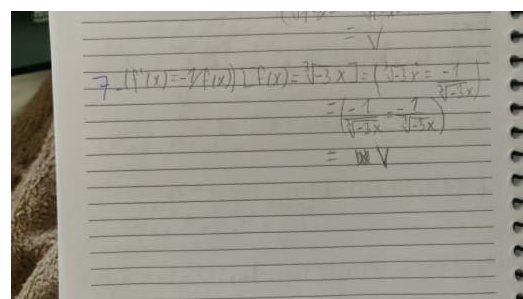 = V
7- (f'(x) = -1/f(x)) [f(x) = ∛-3x] = (∛-3x' = -1/∛-3x)
= (-1/∛-3x = -1/∛-3x)
= V